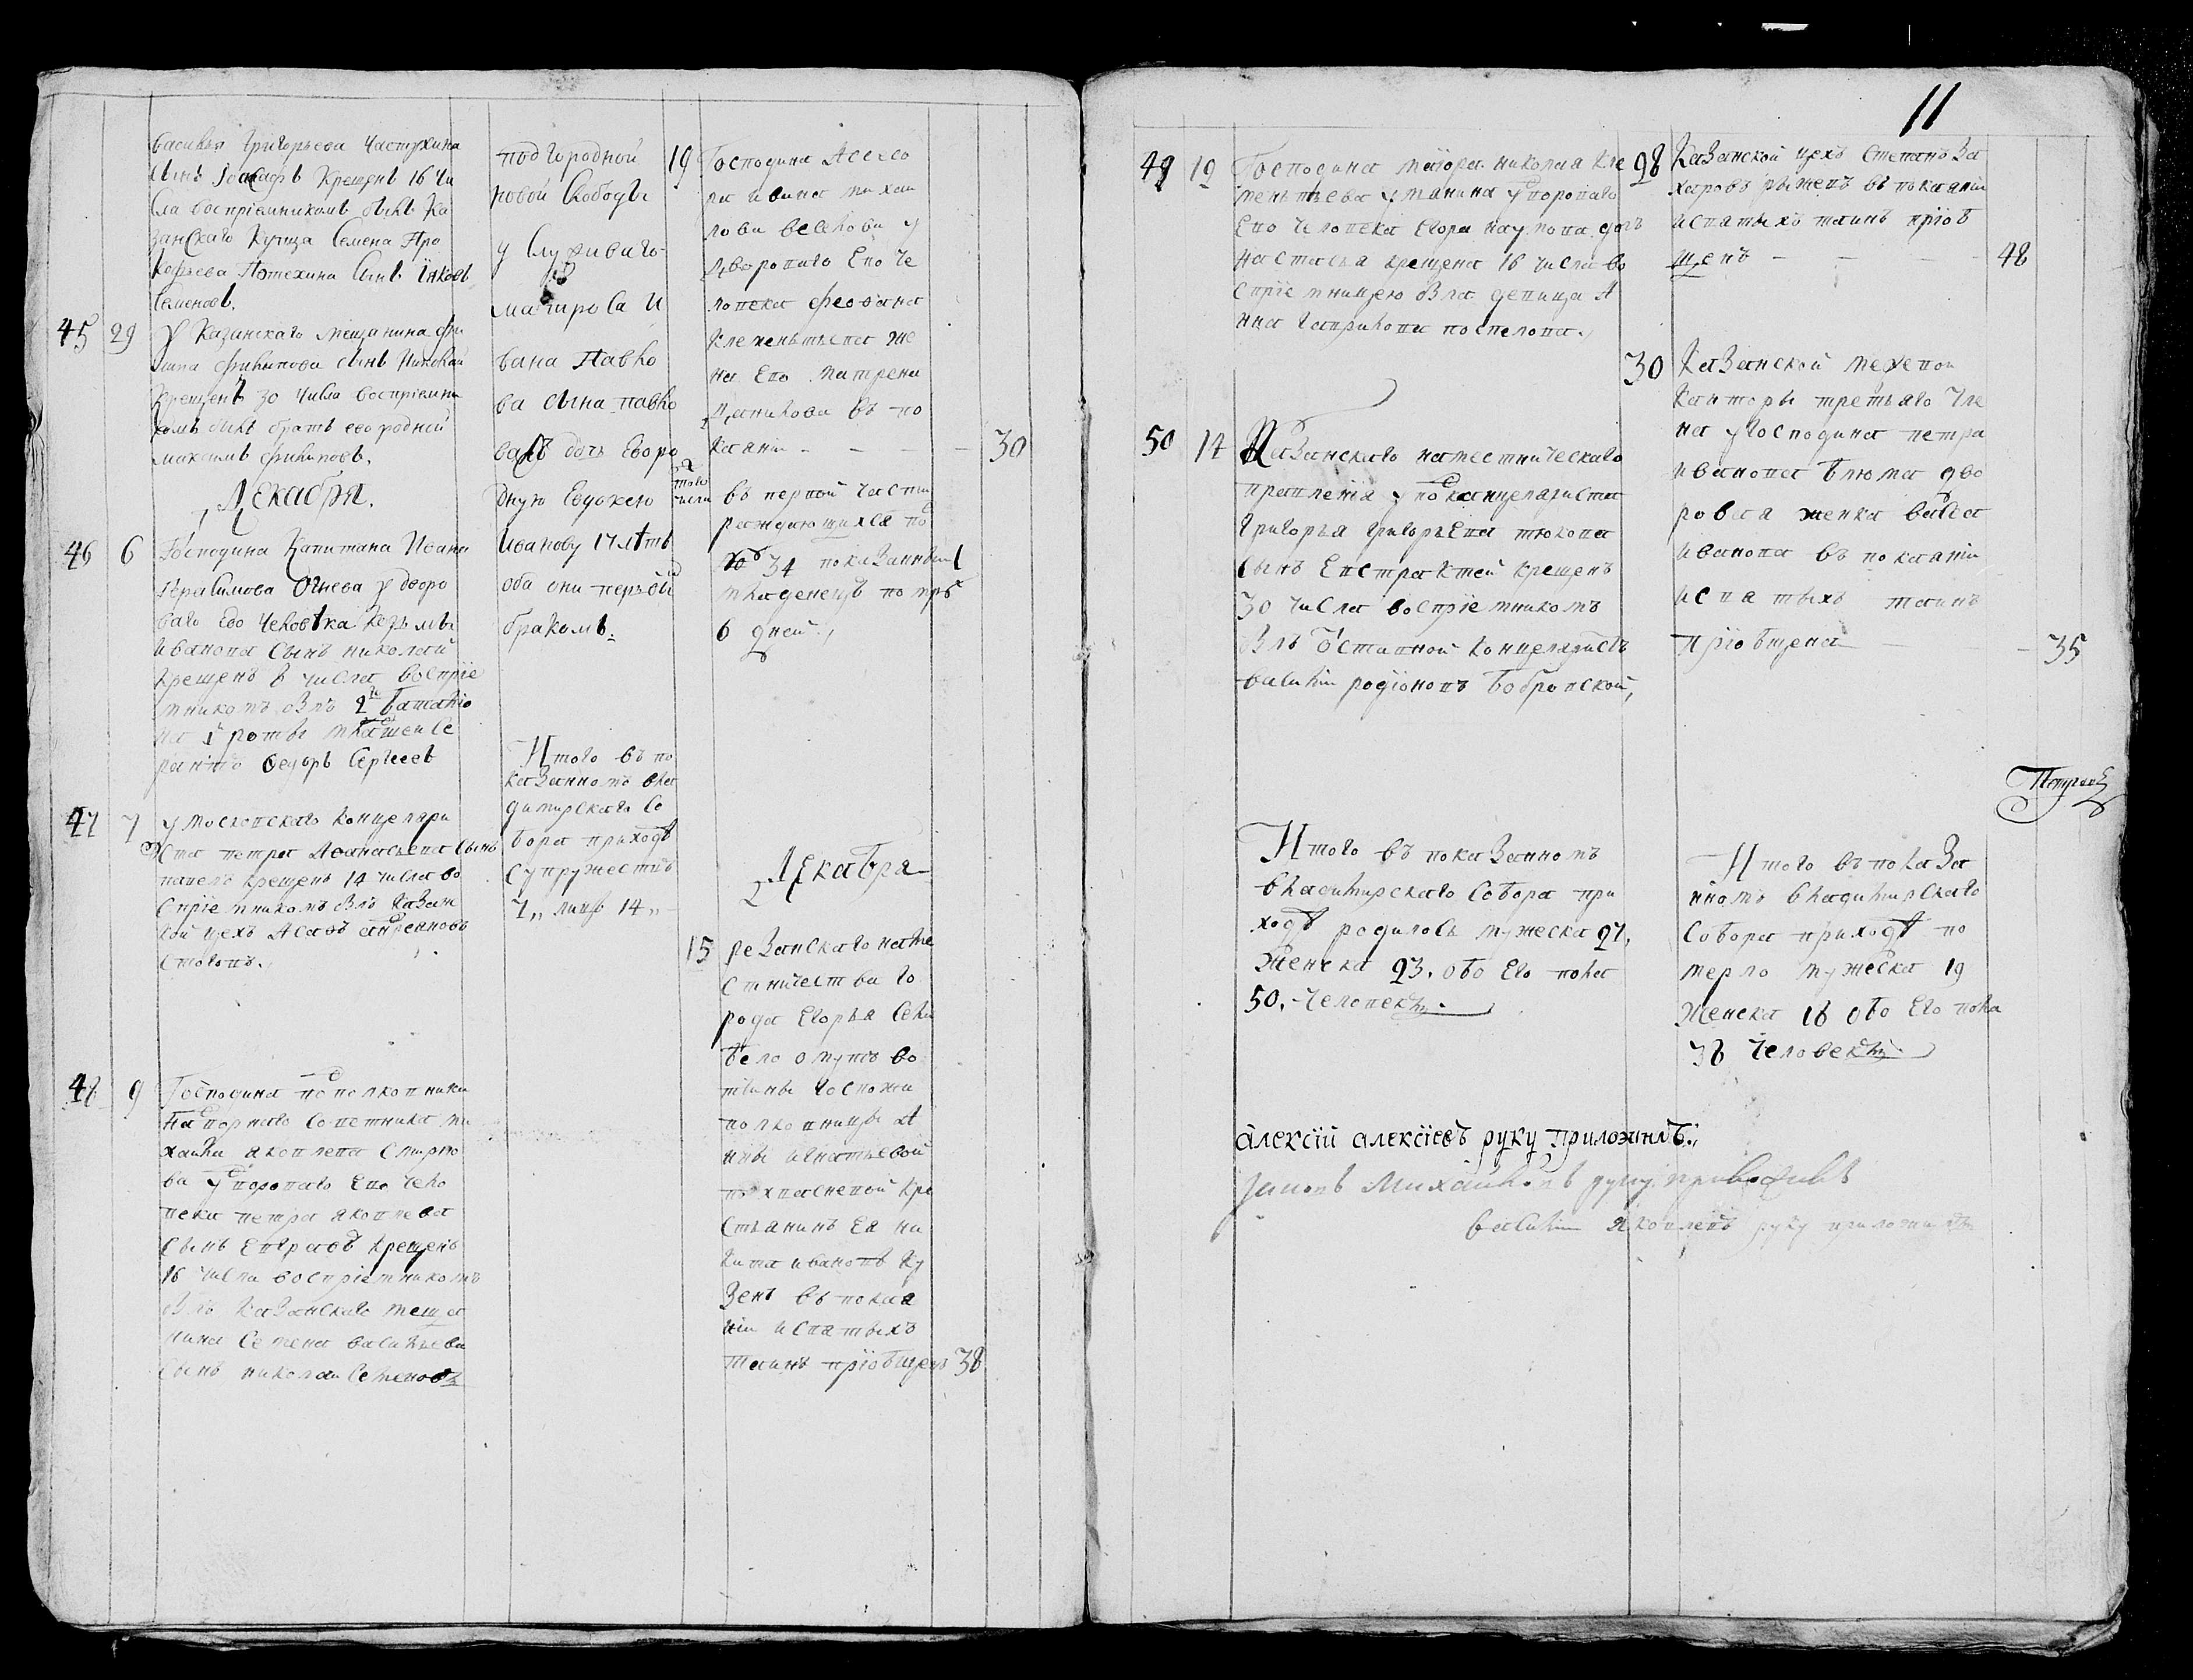 11
Василья Григорьева Частухина
сынъ Iоасафъ крещенъ 16 чи
сла воспрiемникомъ былъ ка
занскаго купца Семена Про
кофьева Потехина сынъ Iяковъ
Семеновъ.
45 29 У казанскаго мещанина Фи
липа Филипова сынъ Николай
крещенъ 30 числа воспрiемни
комъ былъ братъ ево родной
Максимъ Филиповъ.
Декабря.
46 6 Господина капитана Ивана
Герасимова Огнева у дворо
ваго Ево человека Козьмы
Иванова сынъ Николай
крещенъ 8 числа воспрiе
мникомъ былъ 2й баталiо
на 1 роты
Федоръ Сергеевъ
47 7 У московскаго концеляри
ста Петра Афанасьева сынъ
Павелъ крещенъ 14 числа во
спрiемникомъ былъ казан
ской цехъ
48 9 Господина подполковника
надворнаго советника Ми
хайла Яковлева Смирно
ва у двороваго Ево чело
века Петра Яковлева
сынъ Евграфъ крещенъ
16 числа воспрiемникомъ
былъ казанскаго меща
нина Семена Васильева
сынъ Николай Семеновъ
подгородной
ровой слободы
у служиваго
Ивана Павло
ва сына Павло
ва дочь Ево ро
дную Евдокею
Иванову 17 летъ
оба они первымъ
бракомъ.
Итого въ по
казанномъ Вла
димирскаго со
бора приходе
супружествъ
7,, лицъ 14,,
19 Господина Ассесо
ра Ивана Михай
лова Веселова у
двороваго Ево че
ловека Феофана
Клементьева же
на Ево Матрена
Данилова въ по
каянiи - - - - 30
того числа въ первой части
раждающихся под
№ 34 показанный
младенецъ померъ
6 дней.
Декабря
15 Резанскаго наме
стничества го
рода Егорья села
Белоомутъ во
тчины госпожи
полковницы А
нны Игнатьевой
кре
стьянинъ Ея Ни
кита Ивановъ Ку
зенъ въ покая
нiи и святыхъ
таинъ прiобщенъ 38
49 19 Господина маiора Николая Кле
ментьева Уманина у двороваго
Ево человека Егора Наумова дочь
Настасья крещена 16 числа во
спрiемницею была девица А
нна Гаврилова Поспелова.
50 14 Казанскаго наместническаго
правленiя у подканцеляриста
Григорья Григорьева Тюкова
сынъ Евстрактей крещенъ
30 числа воспрiемникомъ
былъ отставной концеляристъ
Василiй Родiоновъ Бобровской,
Итого въ показанномъ
Владимирскаго собора при
ходе родилось мужеска 27,
женска 23. обоего пола
50. человекъ.
28 Казанской цехъ Степанъ За
харовъ Рыжевъ въ покаянiи
и святыхъ таинъ прiоб
щенъ - - - - 48
30 Казанской межевой
канторы третьяго чле
на у господина Петра
Иванова Блюма дво
ровая женка Васса
Иванова въ покаянiи
и святыхъ таинъ
прiобщена - 35
Итого въ показа
нномъ Владимирскаго
собора приходе по
мерло мужеска 19
женска 18 обоего пола
38 человекъ.
Алексiй Алексiевъ руку приложилъ:,
Iаковъ Михайловъ руку приложилъ
Василiй Яковлевъ руку приложилъ